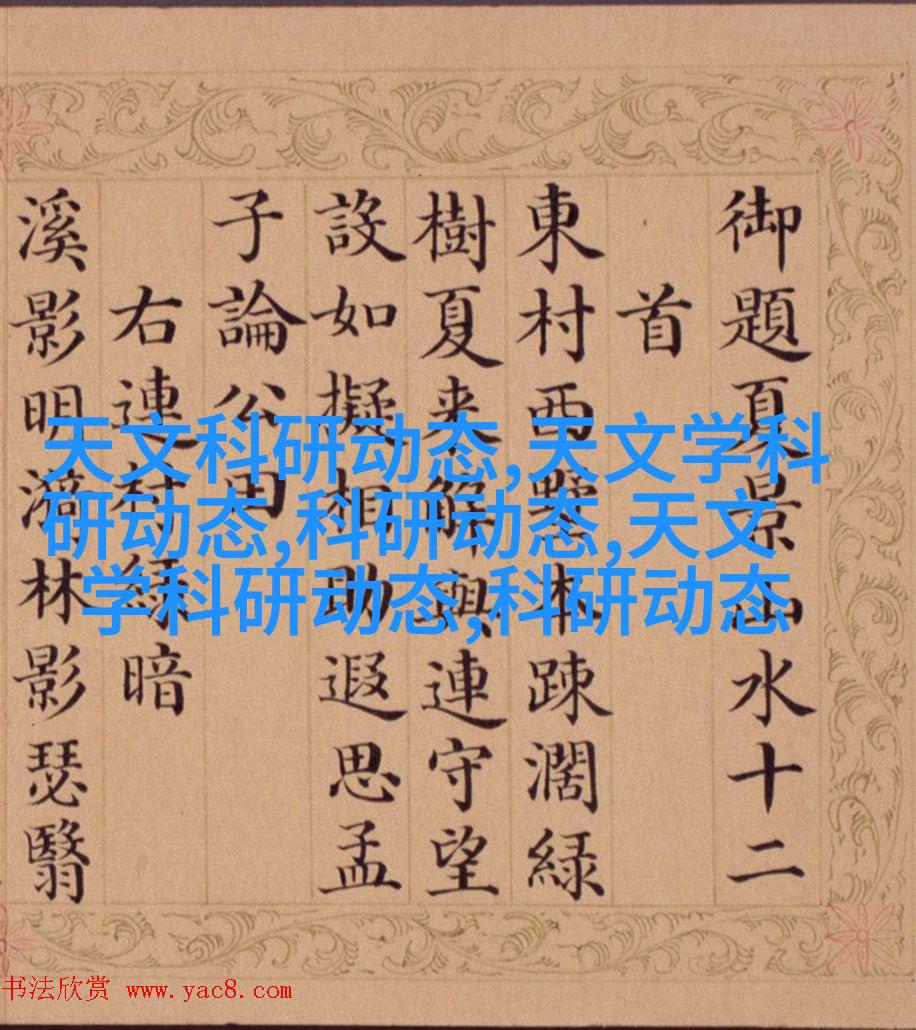 御題夏景山水十二
首
東村西墅本踈濶緑
樹夏来解與連守望
設如擬相助遐思孟
子論公田
右連村緑暗
溪影明漪林影瑟翳
天文科研动态,天文学科
研动态,科研动态,天文
学科研动态,科研动态
书法欣赏 www.yac8.com